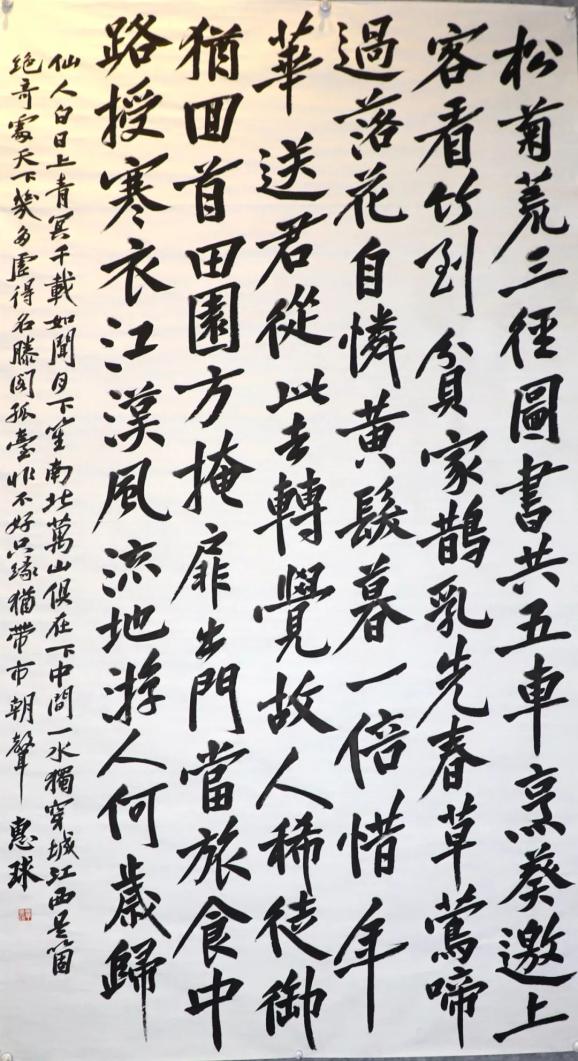 松菊荒三徑圖書共五車烹葵邀上
客看竹到貧家鵲乳先春草鶯啼
過落花自憐黃髮暮一倍惜年
華送君從此去轉覺故人稀徒御
猶回首田園方掩扉出門當旅食中
路授寒衣江漢風流地游人何歲歸
仙人白日上青冥千載如聞月下笙南北萬山俱在下中間一水獨穿城江西是箇
絕奇處天下幾多虛得名滕閣孤臺非不好只緣猶帶市朝聲 惠球